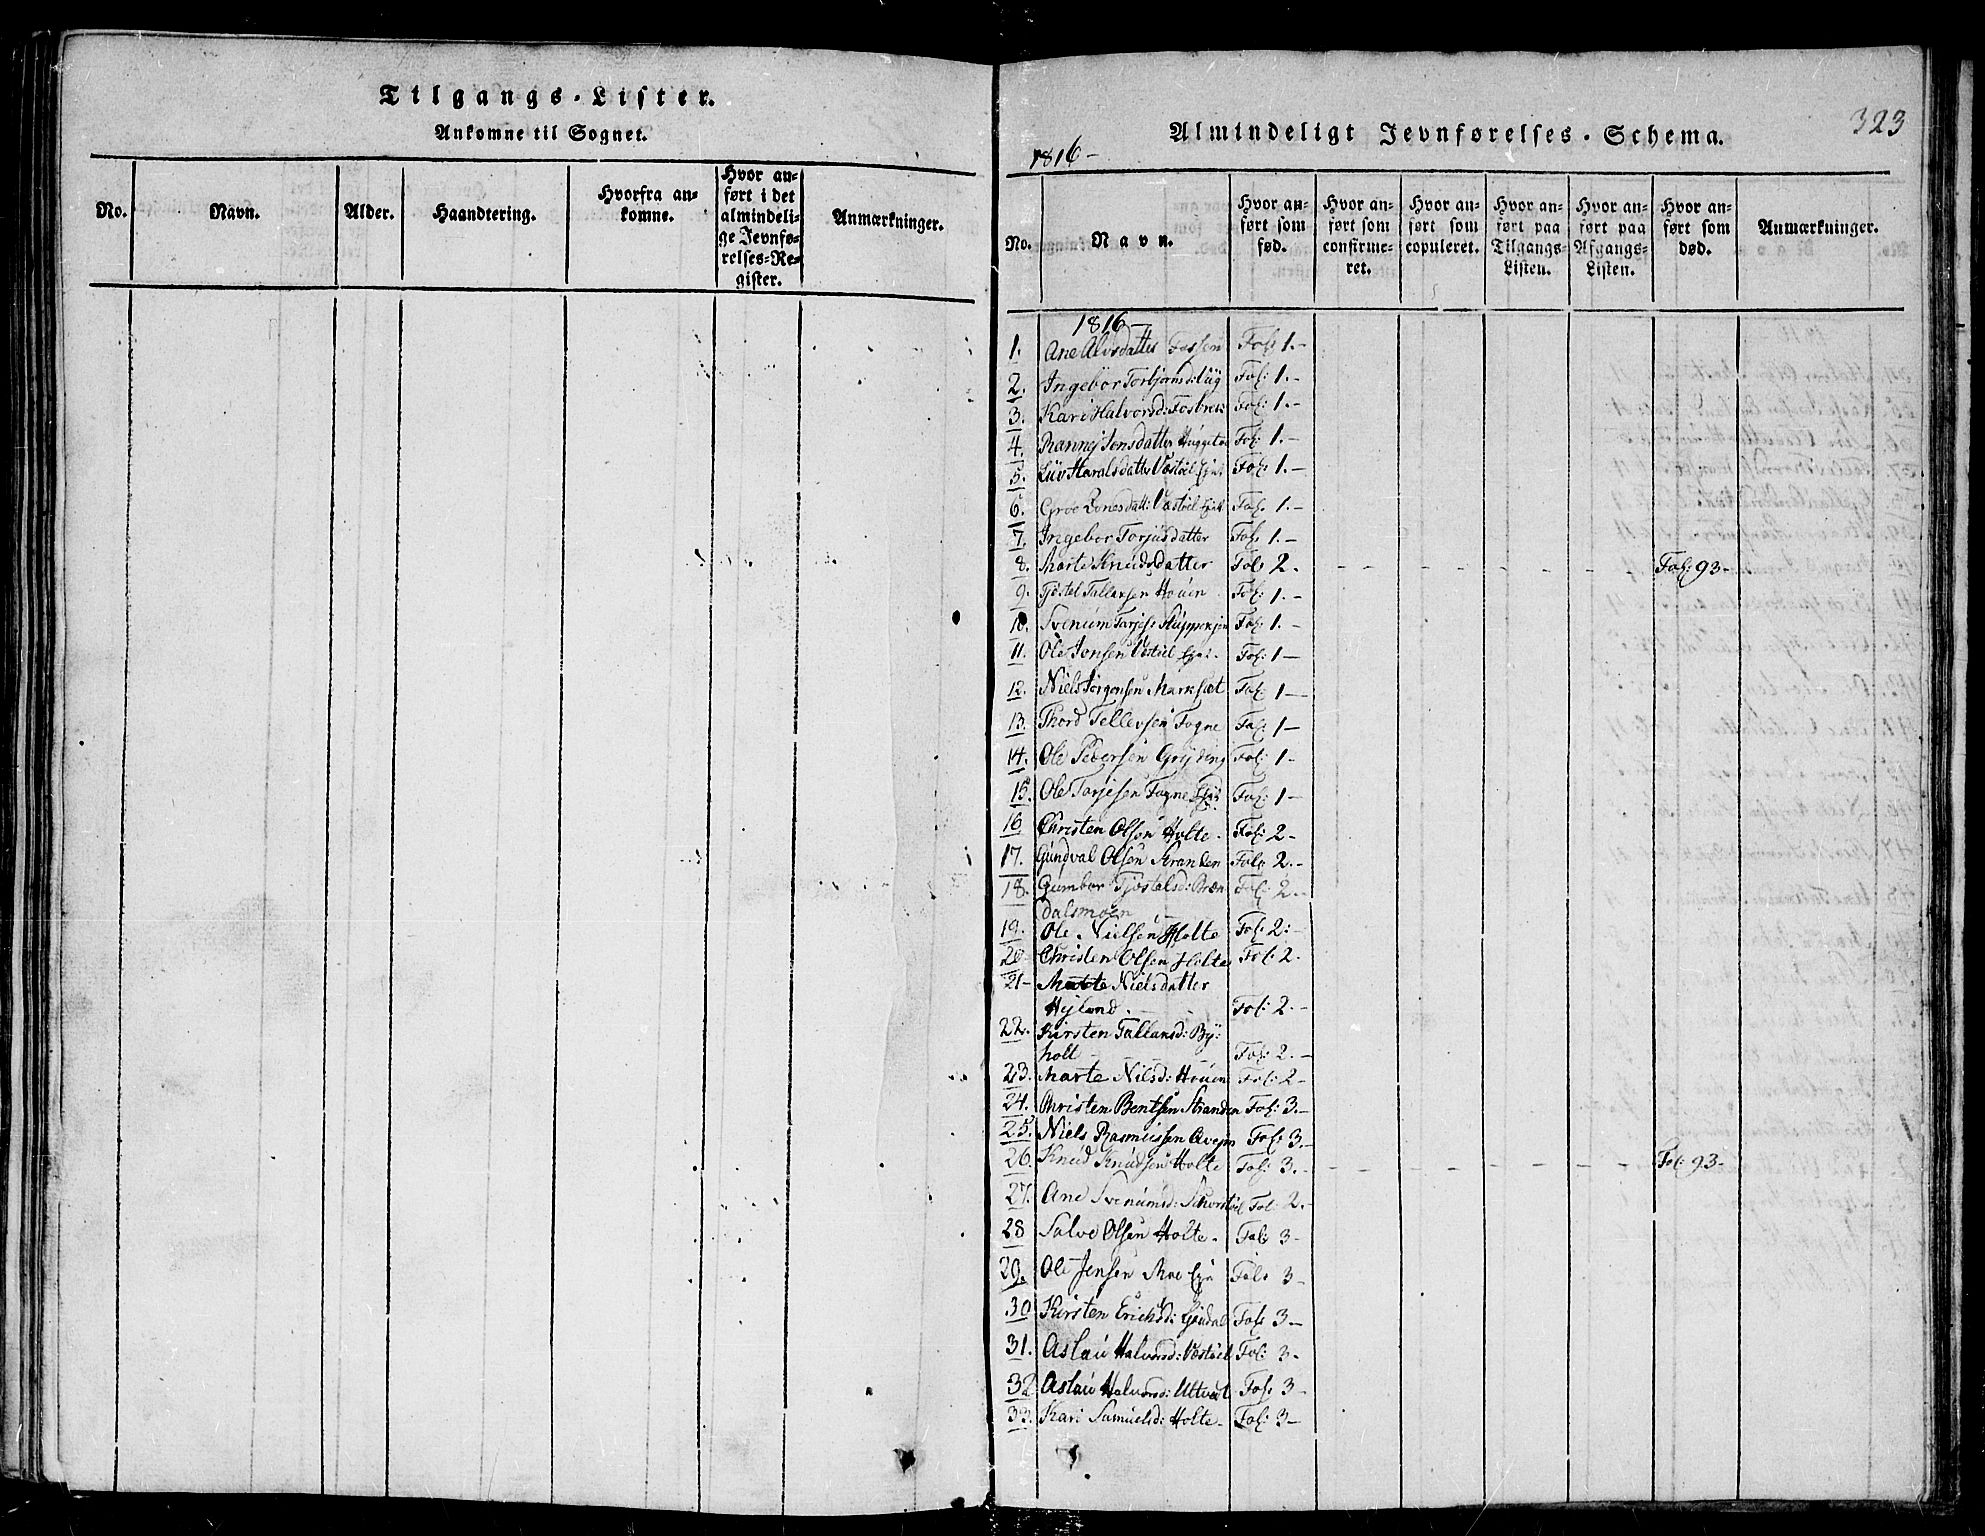 Tilgangs-Lister.
Ankomne til Sognet.
No.
Navn.
Alder.
Haandtering.
Hvorfra an-
komne.
Hvor an-
ført i det
almindeli-
ge Jevnfø-
relses-Re-
gister.
Anmærkninger.
323
Almindeligt Jevnførelses-Schema.
1816-
No.
Navn.
Hvor an-
ført som
fød.
Hvor an-
ført som
confirme-
ret.
Hvor an-
ført som
copuleret.
Hvor an-
ført paa
Tilgangs-
Listen.
Hvor an-
ført paa
Afgangs-
Listen.
Hvor an-
ført som
død.
Anmærkninger.
1816-
1. Ane Alvsdatter Fol: 1.-
2. Ingebor Torbjørnsd: Fol: 1.-
3. Kari Halvorsd: Fosbrek Fol: 1.-
4. Ranney Jonsdatter Fol: 1.-
5. Liiv Haralsdatter Væstøel Fol: 1.-
6. Groe Væstøel Fol: 1.-
7. Ingebor Torjusdatter Fol: 1.-
8. Marte Knudsdatter Fol: 2. - Fol: 93-
9. Tjøstel Tallevsen Houen Fol: 1.-
10. Svenum Tarjes: Fol: 1.-
11. Ole Jonsen Væstøel Fol: 1-
12. Niels Jørgensen Marksæt Fol: 1-
13. Thord Tellevsen Fogne Fol: 1-
14. Ole Pedersen Gryting Fol: 1-
15. Ole Tarjesen Fogne Fol: 1-
16 Christen Olsen Holte. Fol: 2-
17. Gundval Olsen Stranden Fol: 2.-
18. Gumbor Tjøstelsd: Bræn Fol: 2.-
dalsmoen
19. Ole Nielsen Holte Fol: 2.-
20 Christen Olsen Holte Fol: 2.
21- Marte Nielsdatter
Hejland. Fol: 2.-
22. Kirsten Tallansd: By:
holt Fol: 2.-
23. Marte Nilsd: Houen Fol: 2-
24. Christen Bentsen Stranden Fol: 3.-
25. Niels Rasmussen Fol: 3.-
26. Knud Knudsen Holte Fol: 3.- Fol: 93-
27. Ane Svenumsd: Fol: 2.-
28 Salve Olsen Holte. Fol: 3-
29. Ole Jensen Moe Fol: 3-
30 Kirsten Erichsd: Fol: 3-
31. Aslau Halvorsd: Væstøel Fol: 3-
32 Aslau Halvorsd: Fol: 3-
33. Kari Samuelsd: Holte. Fol: 3-